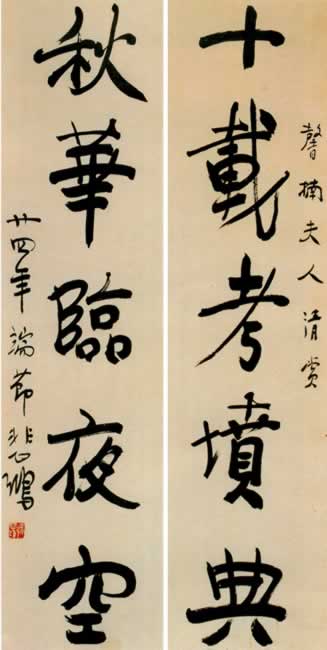 馨楠夫人清赏
十載考墳典
秋華臨夜空
廿四年端節悲鴻